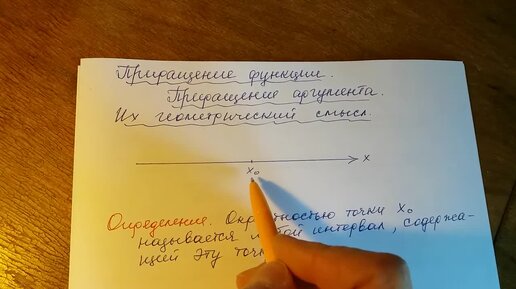 Приращение функции.
Приращение аргумента.
Их геометрический смысл.
x
x₀
Определение. точки x₀
называется интервал, содержа-
щий эту